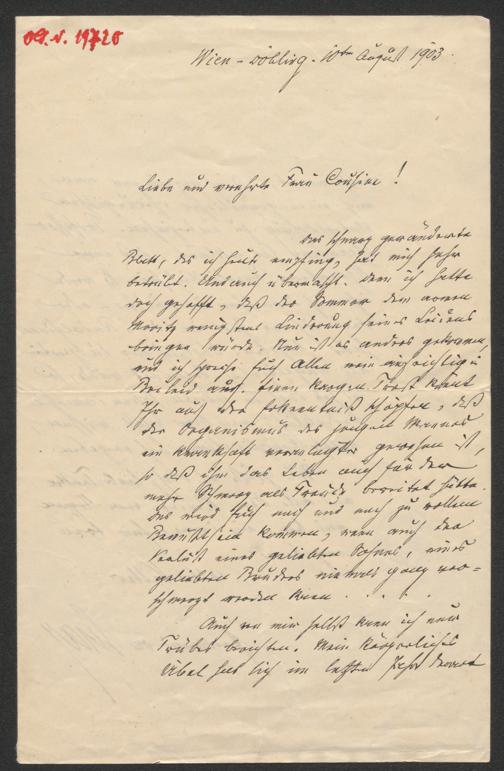 A.N. 19720
Wien-Döbling. 10ten August 1903.
Liebe und verehrte Frau Cousine!
Das schwarz geränderte
Blatt, das ich heute empfing, hat mich sehr
betrübt. Und auch überrascht. Denn ich hatte
doch gehofft, daß der Sommer dem armen
Moritz wenigstens Linderung seines Leidens
bringen würde. Nun ist es anders gekommen,
und ich spreche Euch Allen mein aufrichtiges
Beileid aus. Einen kargen Trost könnt
Ihr aus der Erkenntniß schöpfen, daß
der Organismus des jungen Mannes
ein krankhaft veranlagter gewesen ist,
so daß ihm das Leben auch für der
mehr Schmerz als Freude bereitet hätte.
Das wird Euch nach und nach zu vollem
Bewußtsein kommen, wenn auch der
Verlust eines geliebten Sohnes, eines
geliebten Bruders niemals ganz ver-
schmerzt werden kann . . . .
Auch von mir selbst kann ich nur
Trübes berichten. Mein körperliches
Übel hat sich im letzten Jahr derart